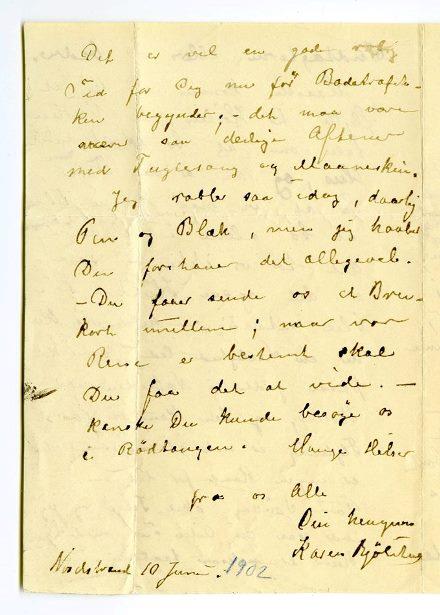 Det er vel en god rolig
Tid for Dig nu før Badetrafik-
ken begynder; - det maa være
saa deilige Aftener
med Fuglesang og Maaneskin.
Jeg rabler saa idag, daarlig
Pen og Blæk, men jeg haaber
Du forstaaer det allegevel.
- Du faaer sende os et Brev-
kort imellem; naar vor
Reise er bestemt skal
Du faa det at vide. -
kanske Du kunde besøge os
i Rødtangen. Mange Hilsner
fra os Alle
Din hengivne
Karen
Nordstrand 10 Juni. 1902